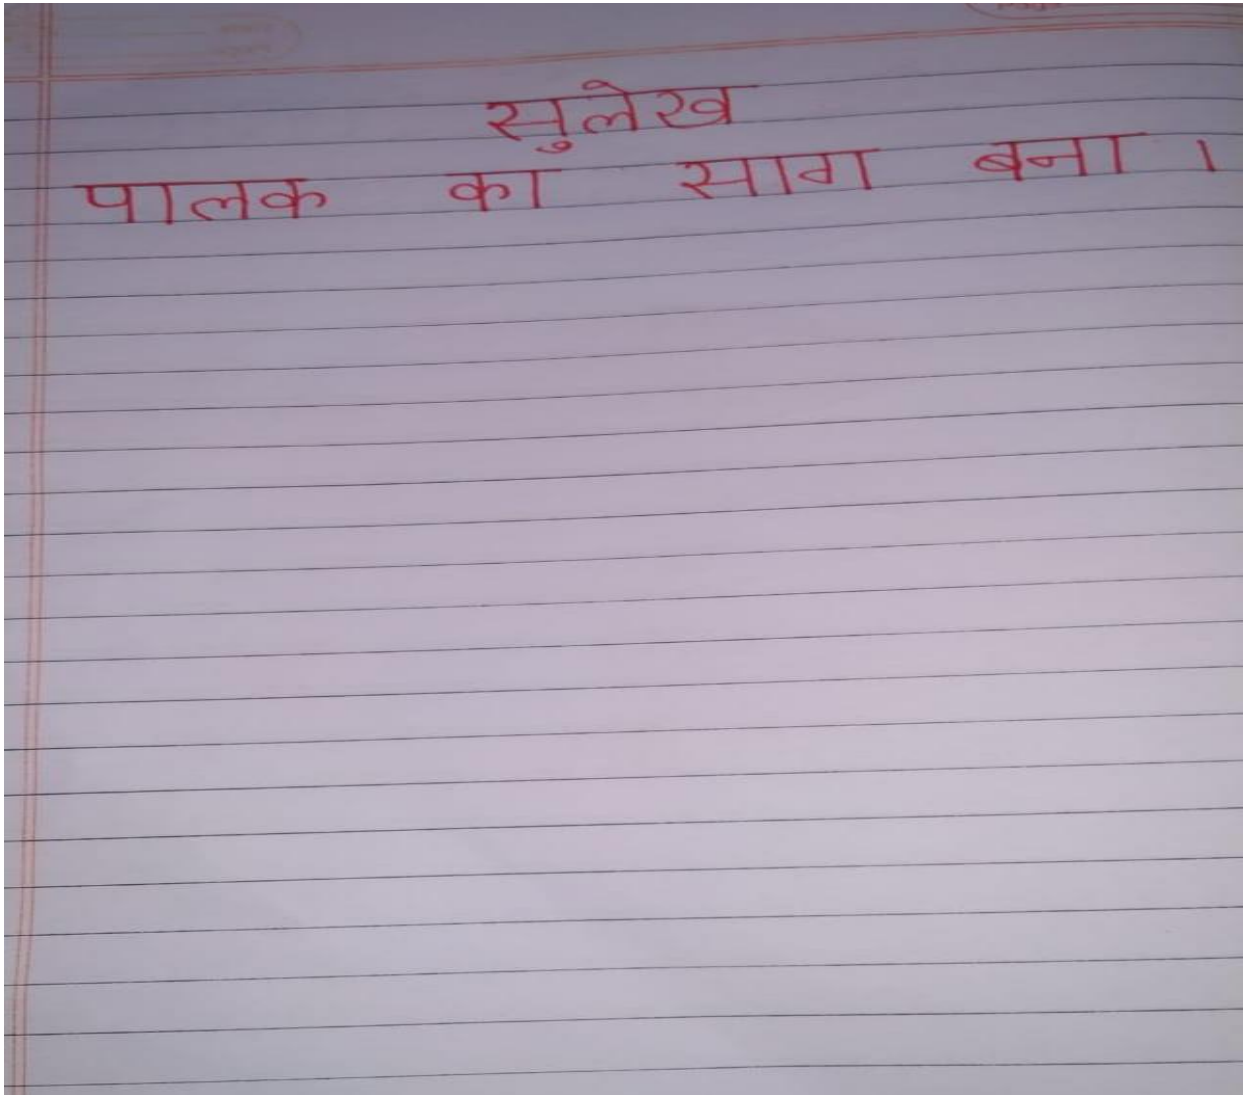 सुलेख
पालक का साग बना ।